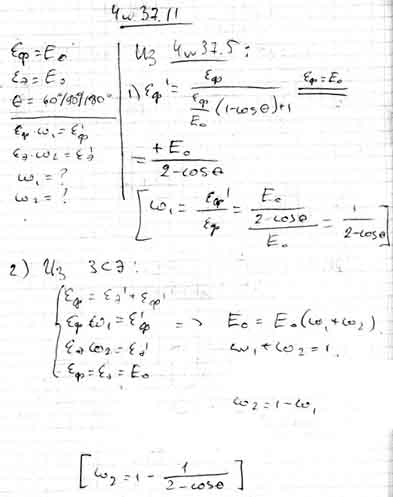 Чω 37.11
εф = E₀
εэ = E₀
θ = 60°/90°/180°
εф·ω₁ = εф'
εэ·ω₂ = εэ'
ω₁ = ?
ω₂ = ?
Из Чω 37.5:
1) εф' = εф / (εф/E₀ (1-cosθ)+1) εф = E₀
= +E₀ / (2-cosθ)
[ω₁ = εф'/εф = (E₀/(2-cosθ))/E₀ = 1/(2-cosθ)]
2) Из ЗСЭ:
{ εф = εэ' + εф'
εф ω₁ = εф' => E₀ = E₀(ω₁+ω₂)
εэ ω₂ = εэ' ω₁+ω₂ = 1.
εф = εэ = E₀
ω₂ = 1-ω₁
[ω₂ = 1 - 1/(2-cosθ)]